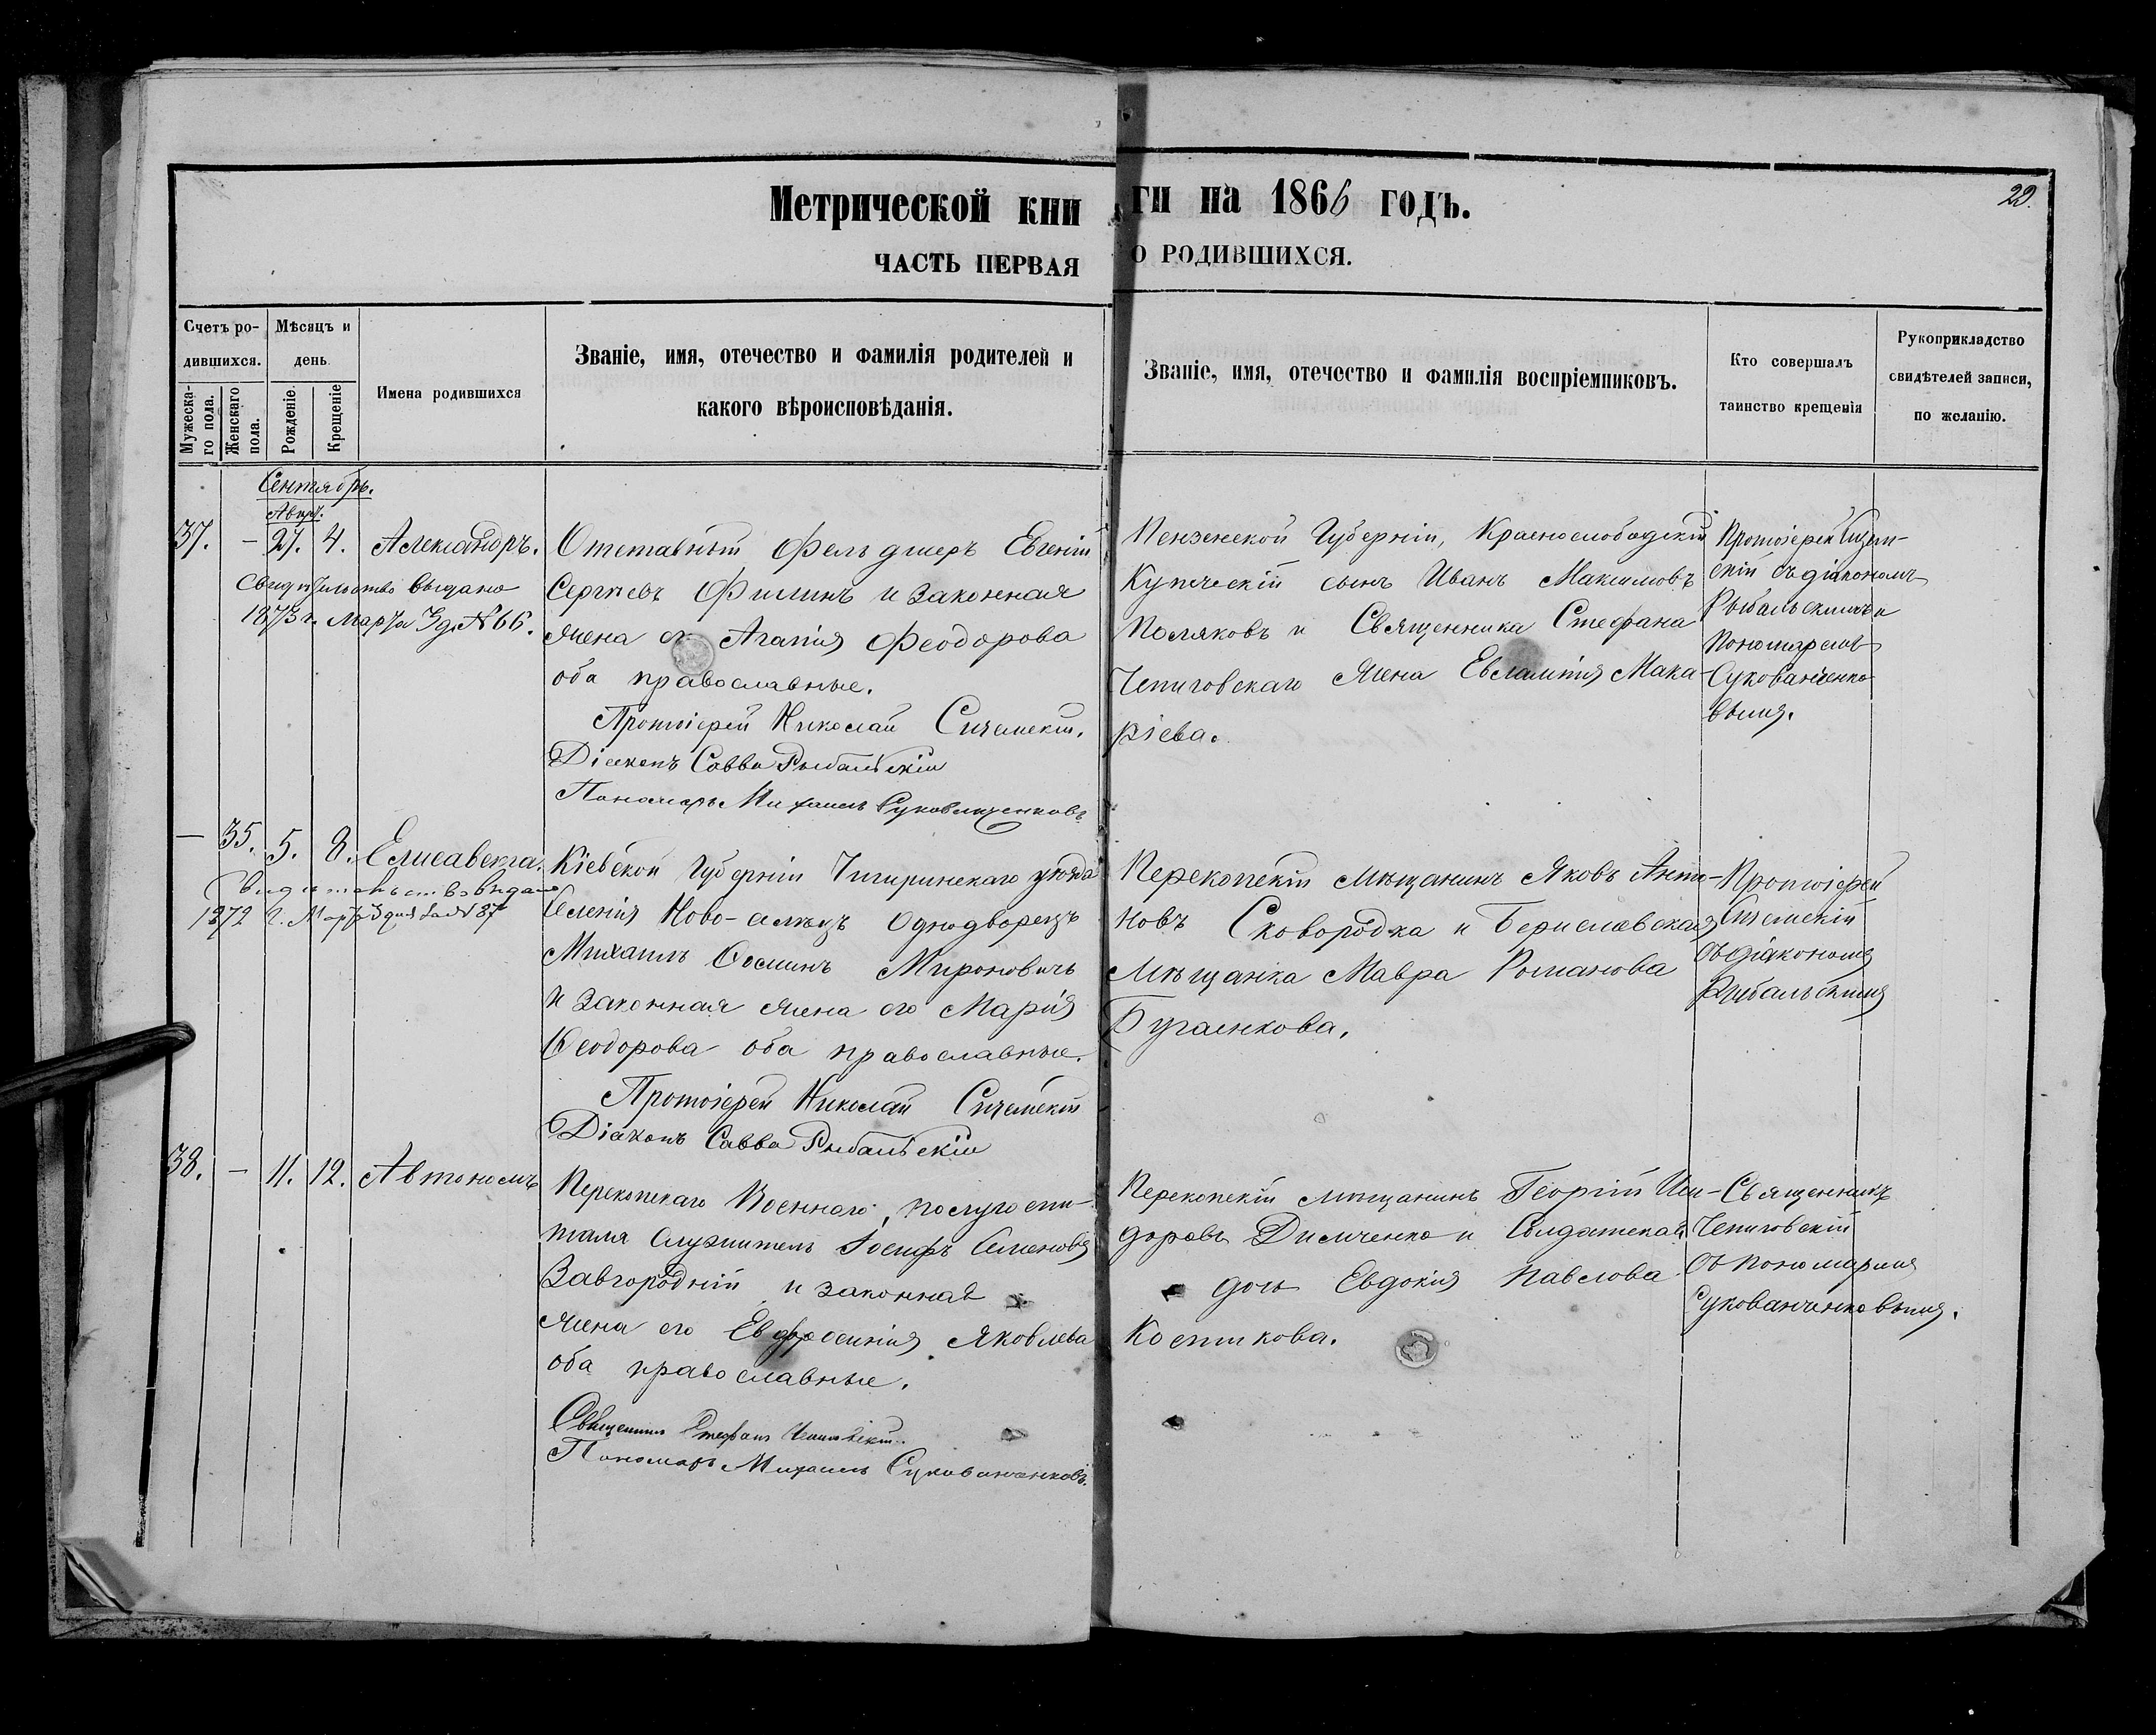 Метрической кни ги на 1866 годъ.
29.
ЧАСТЬ ПЕРВАЯ О РОДИВШИХСЯ.
Счетъ ро-
дившихся.
Мужеска-
го пола.
Женскаго
пола.
Мѣсяцъ и
день
Рожденіе.
Крещеніе
Имена родившихся
Званіе, имя, отечество и фамилія родителей и
какого вѣроисповѣданія.
Званіе, имя, отечество и фамилія воспріемниковъ.
Кто совершалъ
таинство крещенія
Рукоприкладство
свидѣтелей записи,
по желанію.
Сентябрь.
Авгу.
37. - 27. 4. Александръ.
Свидѣтельство выдано
1873 г. Марта 3 д. № 66.
Отставный Фельдшеръ Евгеній
Сергѣевъ Филинъ и законная
жена ег Агапія Феодорова
оба православные.
Протоіерей Николай
Діаконъ Савва Рыбальскій
Пономарь Михаилъ
Пензенской Губерніи, Краснослободскій
Купеческій сынъ Иванъ Максимовъ
Поляковъ и Священника Стефана
Чепиговскаго жена Евлампія Мака-
ріева.
Протоіерей
скій съ діакономъ
Рыбальскимъ и
Пономаремъ
Сукованченко-
вымъ.
— 35. 5. 8. Елисавета.
Свидѣтельство выдано
1872 г. Марта 3 дня за № 87
Кіевской Губерніи Чигиринскаго уѣзда
Селенія Ново-селицъ Однодворецъ
Михаилъ Мироновичъ
и законная жена его Марія
Феодорова оба православные.
Протоіерей Николай
Діаконъ Савва Рыбальскій
Перекопскій Мѣщанинъ Яковъ Анто-
новъ Сковородка и Бериславская
Мѣщанка Мавра Романова
Бугаенкова.
Протоіерей
съ діакономъ
Рыбальскимъ
38. — 11. 12. Автономъ
Перекопскаго Военнаго полугоспи-
таля Служитель Іосифъ Семеновъ
Завгородній и законная
жена его Евфросинія Яковлева
оба православные.
Священникъ Стефанъ Чепиговскій
Пономарь Михаилъ Сукованченковъ.
Перекопскій мѣщанинъ Георгій Иси-
доровъ Димченко и Солдатская
дочь Евдокія Павлова
Костикова.
Священникъ
Чепиговскій
съ пономаремъ
Сукованченковымъ.